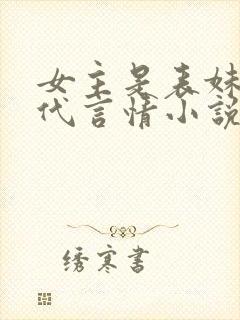 女主是表妹
代言情小說
绣寒書